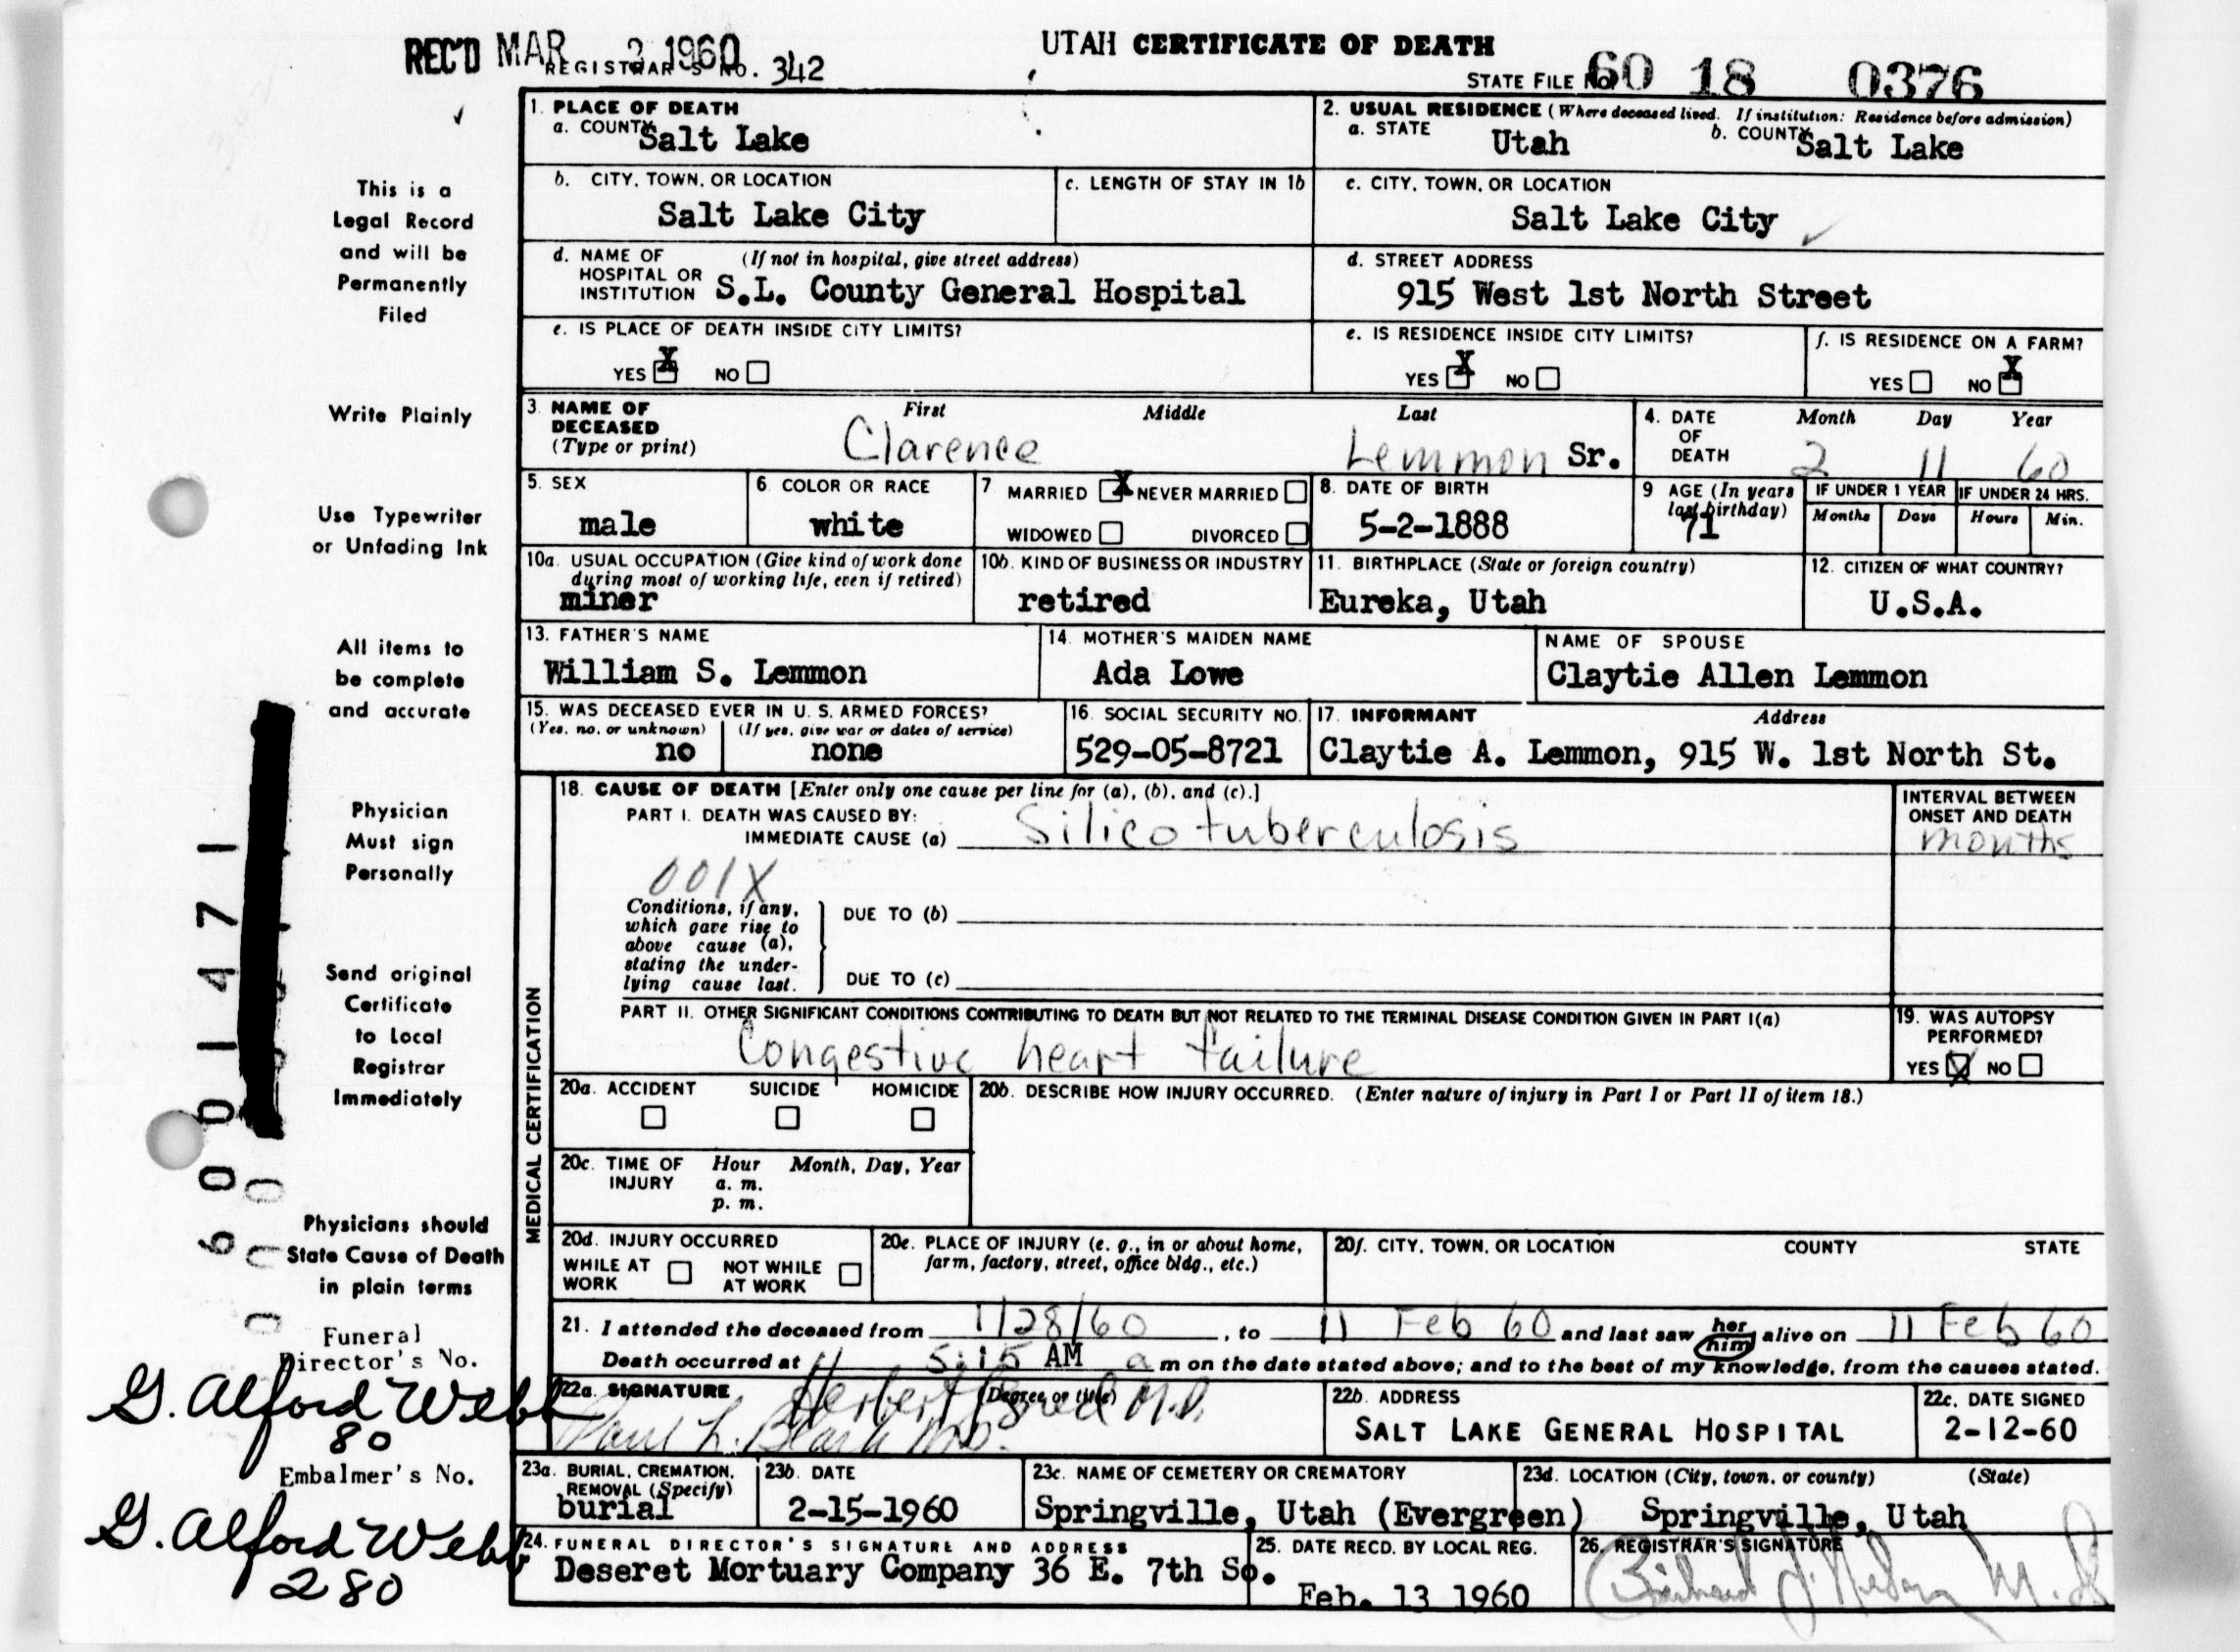 REC'D MAR 2 1960
REGISTRAR'S NO. 342
UTAH CERTIFICATE OF DEATH
STATE FILE NO. 60 18 0376
This is a
Legal Record
and will be
Permanently
Filed
Write Plainly
Use Typewriter
or Unfading Ink
All items to
be complete
and accurate
Physician
Must sign
Personally
Send original
Certificate
to Local
Registrar
Immediately
Physicians should
State Cause of Death
in plain terms
Funeral
Director's No.
G. Alford Webb
80
Embalmer's No.
G. Alford Webb
280
1. PLACE OF DEATH
a. COUNTY Salt Lake
2. USUAL RESIDENCE (Where deceased lived. If institution: Residence before admission)
a. STATE Utah b. COUNTY Salt Lake
b. CITY, TOWN, OR LOCATION
Salt Lake City
c. LENGTH OF STAY IN 1b
c. CITY, TOWN, OR LOCATION
Salt Lake City
d. NAME OF HOSPITAL OR INSTITUTION (If not in hospital, give street address)
S.L. County General Hospital
d. STREET ADDRESS
915 West 1st North Street
e. IS PLACE OF DEATH INSIDE CITY LIMITS?
YES X NO
e. IS RESIDENCE INSIDE CITY LIMITS?
YES X NO
f. IS RESIDENCE ON A FARM?
YES NO X
3. NAME OF DECEASED (Type or print)
First Middle Last
Clarence Lemmon Sr.
4. DATE OF DEATH
Month Day Year
2 11 60
5. SEX
male
6. COLOR OR RACE
white
7 MARRIED X NEVER MARRIED
WIDOWED DIVORCED
8. DATE OF BIRTH
5-2-1888
9 AGE (In years last birthday)
71
IF UNDER 1 YEAR
Months Days
IF UNDER 24 HRS.
Hours Min.
10a. USUAL OCCUPATION (Give kind of work done during most of working life, even if retired)
miner
10b. KIND OF BUSINESS OR INDUSTRY
retired
11. BIRTHPLACE (State or foreign country)
Eureka, Utah
12. CITIZEN OF WHAT COUNTRY?
U.S.A.
13. FATHER'S NAME
William S. Lemmon
14. MOTHER'S MAIDEN NAME
Ada Lowe
NAME OF SPOUSE
Claytie Allen Lemmon
15. WAS DECEASED EVER IN U. S. ARMED FORCES?
(Yes, no, or unknown) (If yes, give war or dates of service)
no none
16. SOCIAL SECURITY NO.
529-05-8721
17. INFORMANT Address
Claytie A. Lemmon, 915 W. 1st North St.
MEDICAL CERTIFICATION
18. CAUSE OF DEATH [Enter only one cause per line for (a), (b), and (c).]
PART I. DEATH WAS CAUSED BY:
IMMEDIATE CAUSE (a) Silicotuberculosis
INTERVAL BETWEEN ONSET AND DEATH
months
001X
Conditions, if any, which gave rise to above cause (a), stating the underlying cause last.
DUE TO (b)
DUE TO (c)
PART II. OTHER SIGNIFICANT CONDITIONS CONTRIBUTING TO DEATH BUT NOT RELATED TO THE TERMINAL DISEASE CONDITION GIVEN IN PART I(a)
Congestive heart failure
19. WAS AUTOPSY PERFORMED?
YES X NO
20a. ACCIDENT SUICIDE HOMICIDE
20b. DESCRIBE HOW INJURY OCCURRED. (Enter nature of injury in Part I or Part II of item 18.)
20c. TIME OF INJURY
Hour Month, Day, Year
a. m.
p. m.
20d. INJURY OCCURRED
WHILE AT WORK NOT WHILE AT WORK
20e. PLACE OF INJURY (e. g., in or about home, farm, factory, street, office bldg., etc.)
20f. CITY, TOWN, OR LOCATION COUNTY STATE
21. I attended the deceased from 1/28/60, to 11 Feb 60 and last saw her him alive on 11 Feb 60
Death occurred at 5:15 AM a m on the date stated above; and to the best of my knowledge, from the causes stated.
22a. SIGNATURE (Degree or title)
Herbert M.D.
Paul L. M.D.
22b. ADDRESS
SALT LAKE GENERAL HOSPITAL
22c. DATE SIGNED
2-12-60
23a. BURIAL, CREMATION, REMOVAL (Specify)
burial
23b. DATE
2-15-1960
23c. NAME OF CEMETERY OR CREMATORY
Springville, Utah (Evergreen)
23d. LOCATION (City, town, or county) (State)
Springville, Utah
24. FUNERAL DIRECTOR'S SIGNATURE AND ADDRESS
Deseret Mortuary Company 36 E. 7th So.
25. DATE RECD. BY LOCAL REG.
Feb. 13 1960
26. REGISTRAR'S SIGNATURE
Richard M.D.